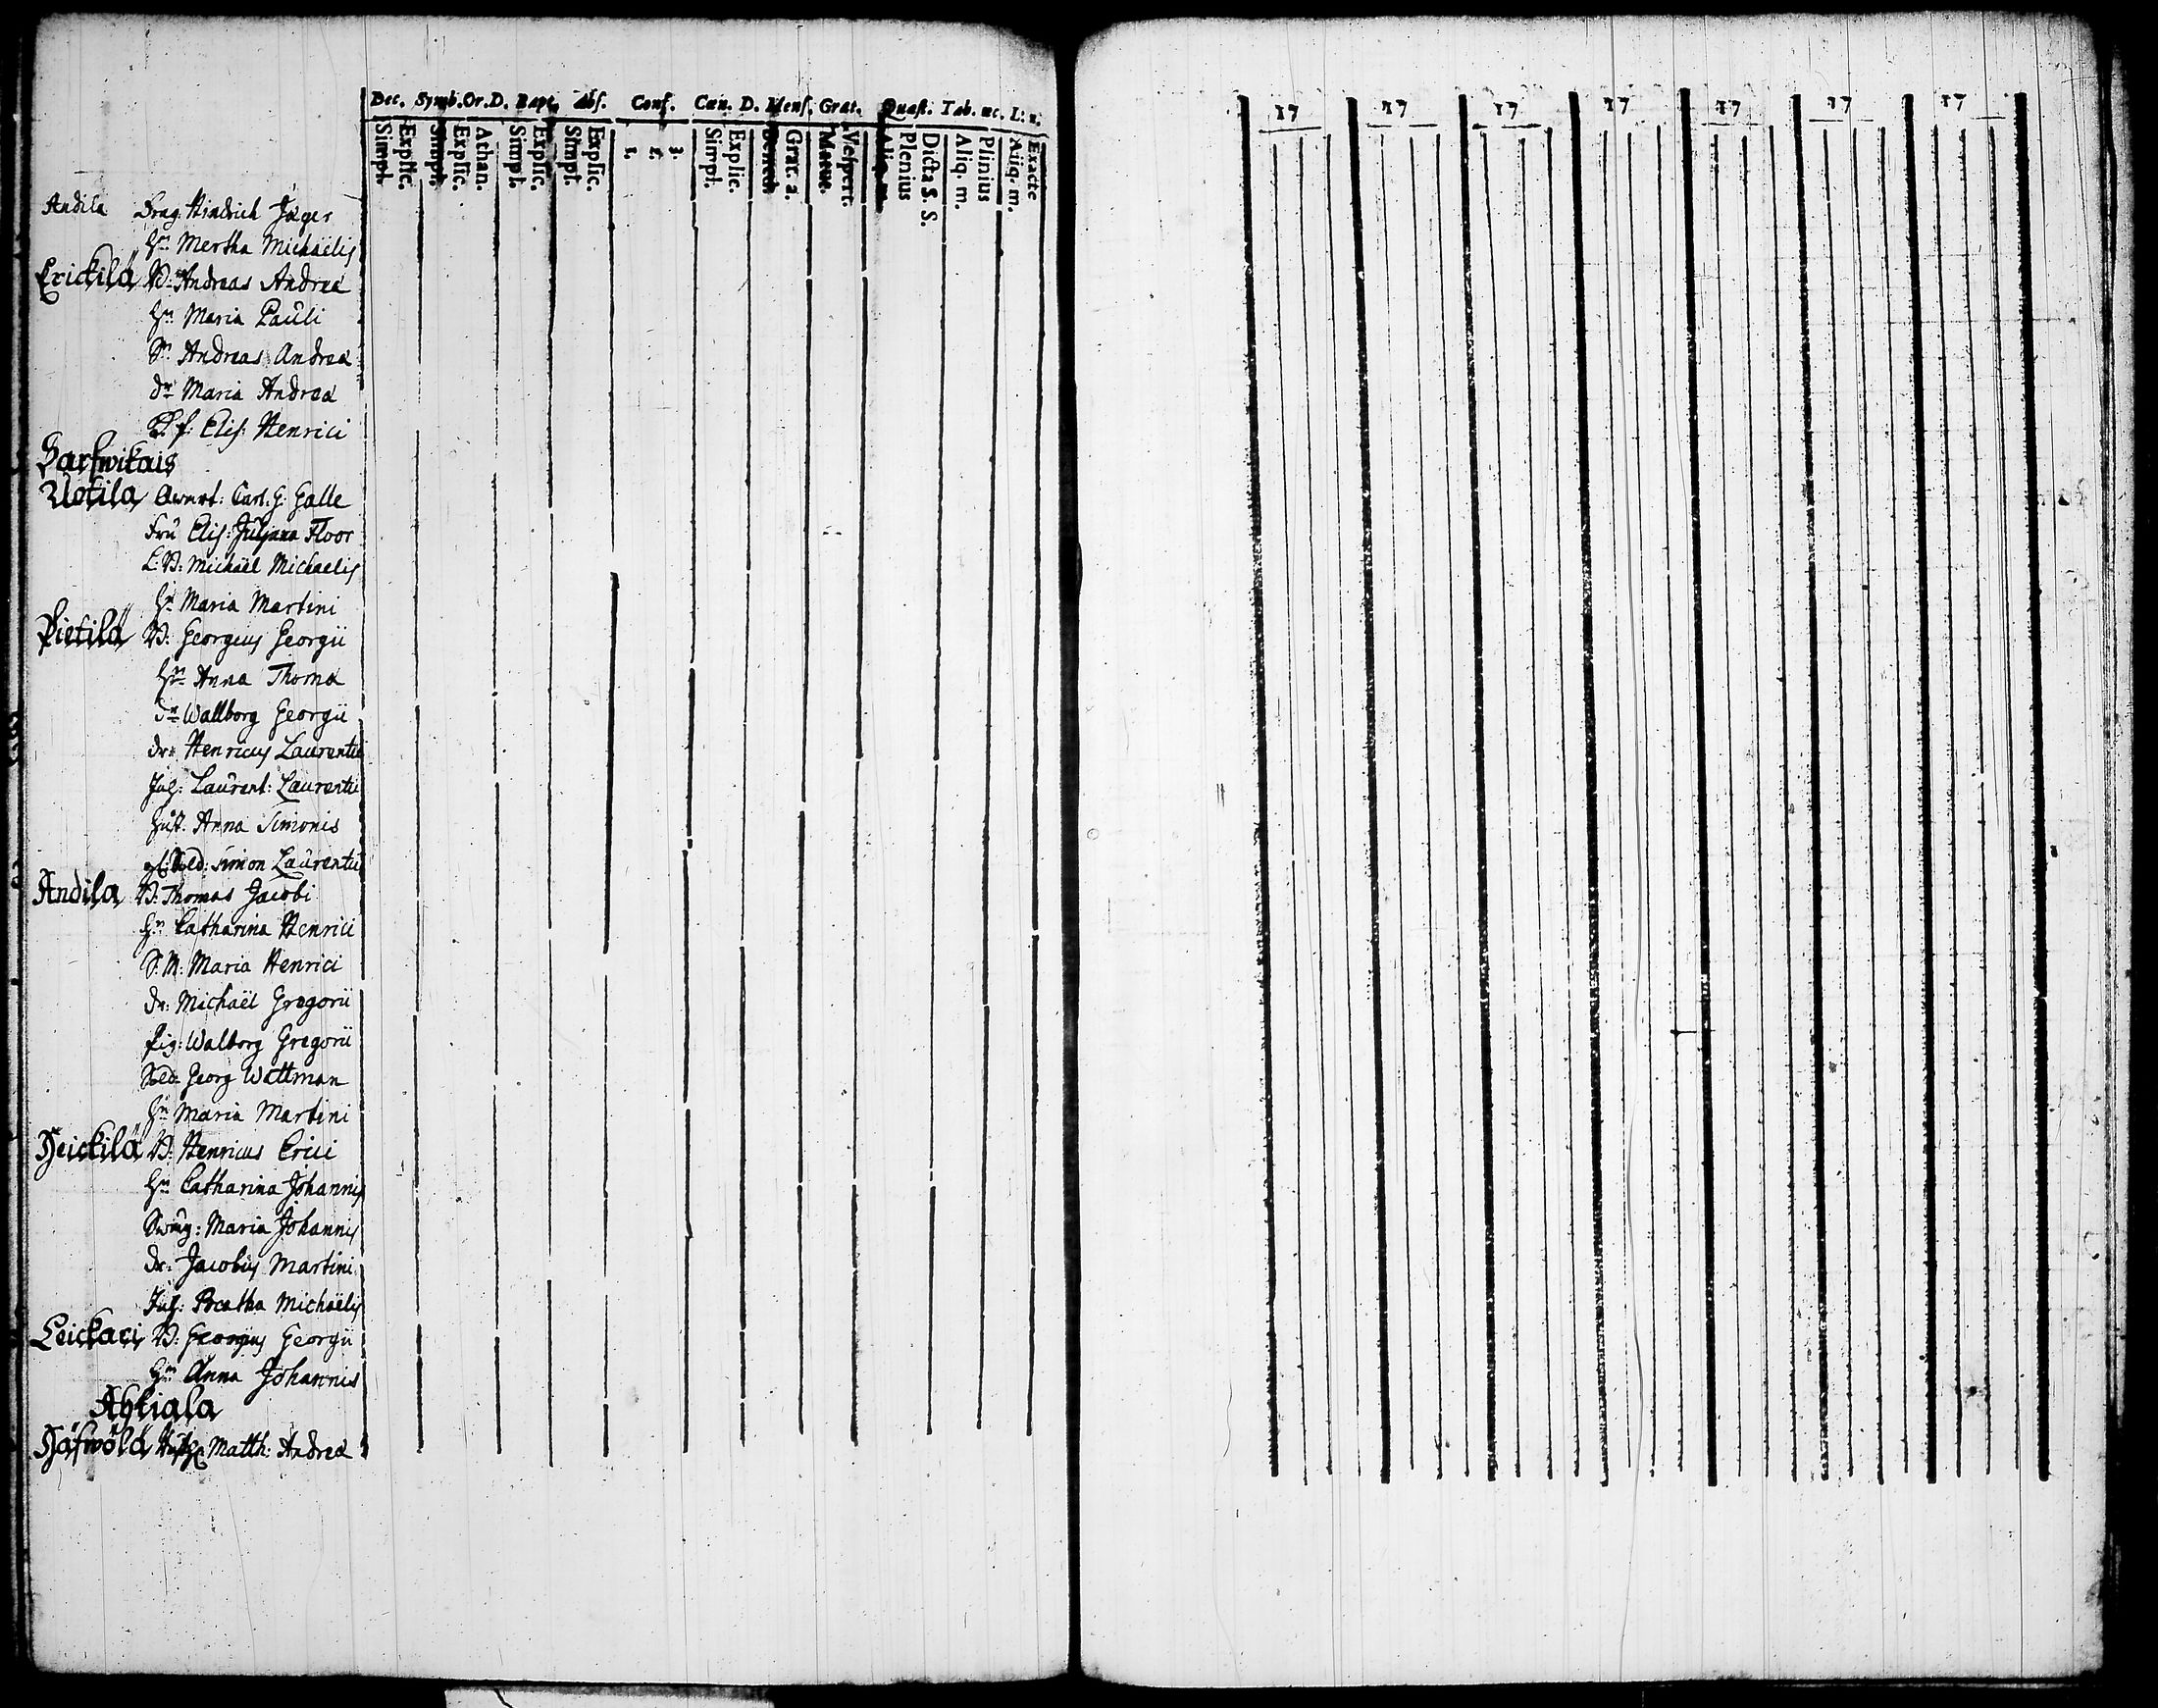 Dec. Symb. Or. D. Bapt. Abs. Conf. Cœn. D. Mens. Grat. Quæst. Tab. œc. L: n.
Simpl. Explic. Simpl. Explic. Athan. Simpl. Explic. Simpl. Explic. 1. 2. 3. Simpl. Explic. Bened. Grat. a. Matut. Vespert. Aliq. m. Plenius Dicta S. S. Aliq. m. Plinius Aliq. m. Exacte
17 17 17 17 17 17 17
Andila Drag. Hindrich Jäger
Hu Mertha Michaëlis
Erickilä B: Andreas Andreæ
Hu Maria Pauli
Sn Andreas Andreæ
dr Maria Andreæ
Elis: Henrici
Sarfwikais
Uotila Carl. G: Galle
Fru Elis: Juliana Floor
L: B: Michäel Michaelis
Hu Maria Martini
Pietilä B: Georgius Georgii
Hu Anna Thomæ
dr Wallborg Georgii
dr: Henricus Laurentii
Inh: Laurent: Laurentii
Hust. Anna Simonis
Sold: Simon Laurentii
Andila B: Thomas Jacobi
Hu Catharina Henrici
S. M: Maria Henrici
dr: Michaël Gregorii
Pig: Walborg Gregorii
Sold: Georg Wattman
Hu Maria Martini
Heickilä B: Henricus Erici
Hu Catharina Johannis
Maria Johannis
dr: Jacobus Martini
Inh: Beatha Michaëlis
Leickari B: Georgius Georgii
Hu Anna Johannis
Ahtiala
Matth: Andreæ